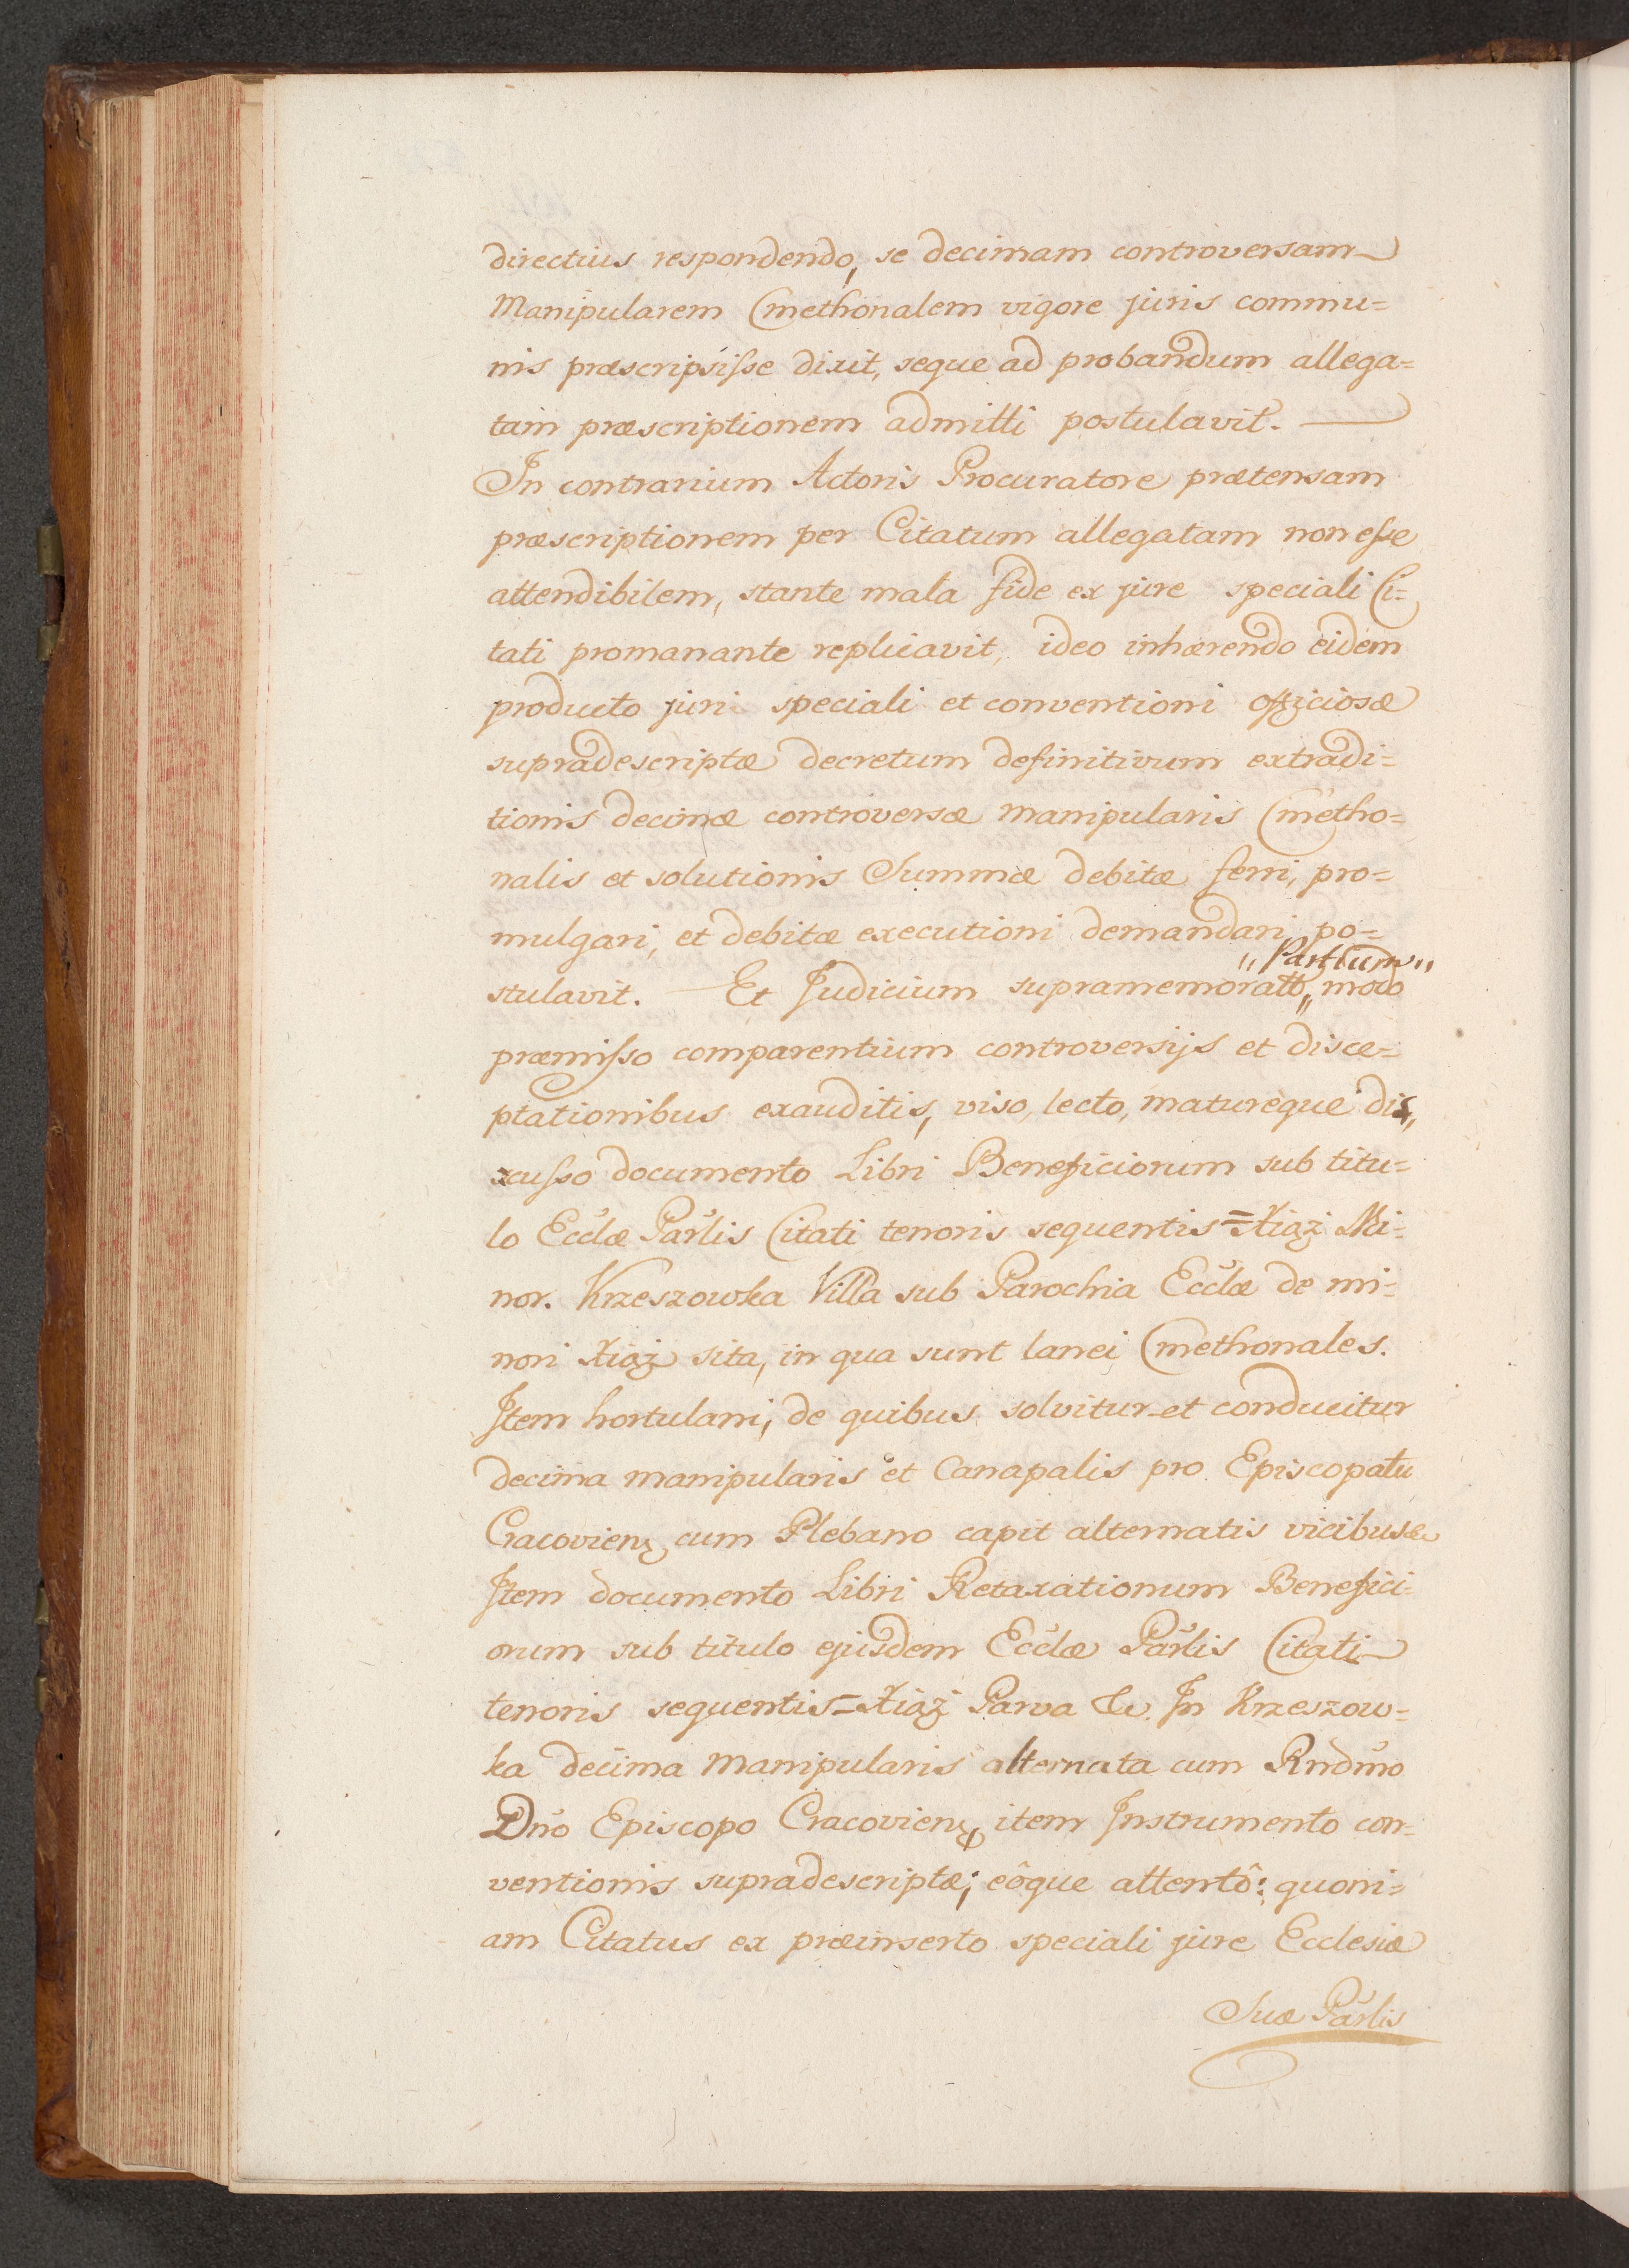 directius respondendo, se decimam controversam
Manipularem Cmethonalem vigore juris commu=
nis præscripsisse dixit, seque ad probandum allega=
tam præscriptionem admitti postulavit.
In contrarium Actoris Procuratore prætensam
præscriptionem per Citatum allegatam non esse
attendibilem, stante mala fide ex jure speciali Ci=
tati promanante replicavit, ideo inhærendo eidem
producto juri speciali et conventioni officiosæ
supradescriptæ decretum definitivum extradi=
tionis decimæ controversæ manipularis Cmetho=
nalis et solutionis Summæ debitæ ferri, pro=
mulgari, et debitæ executioni demandari po=
"Partium"
stulavit. Et Judicium supramemoratt, modo
præmisso comparentium controversijs et disce=
ptationibus exauditis, viso, lecto, matureque dis,
cusso documento Libri Beneficiorum sub titu=
lo Ecclæ Parlis Citati tenoris sequentis=Xiąż Mi=
nor. Krzeszowka Villa sub Parochia Ecclæ de mi=
nori Xiąż sita, in qua sunt lanei Cmethonales.
Item hortulani, de quibus solvitur et conducitur
decima manipularis et Canapalis pro Episcopatu
Cracovien, cum Plebano capit alternatis vicibus &
Item documento Libri Retaxationum Benefici=
orum sub titulo ejusdem Ecclæ Parlis Citati
tenoris sequentis=Xiąż Parva &. In Krzeszow=
ka decima Manipularis alternata cum Rndmo
Dño Episcopo Cracovien, item Instrumento con=
ventionis supradescriptæ; eôque attentô: quoni=
am Citatus ex præinserto speciali jure Ecclesiæ
Suæ Parlis